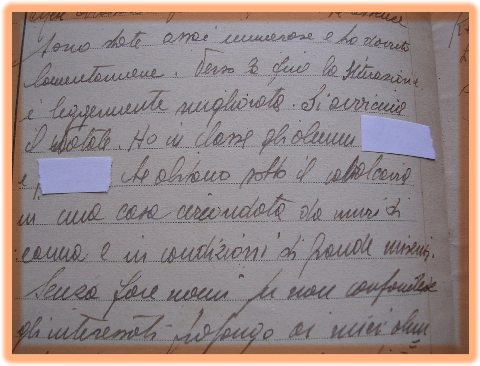 sono state assai numerose e ho dovuto
lamentarmene. Verso la fine la situazione
è leggermente migliorata. Si avvicina
il Natale. Ho in classe gli alunni
e che abitano sotto il cavalcavia
in una casa circondata da muri di
canna e in condizioni di grande miseria.
Senza fare nomi per non confondere
gli interessati propongo ai miei alun